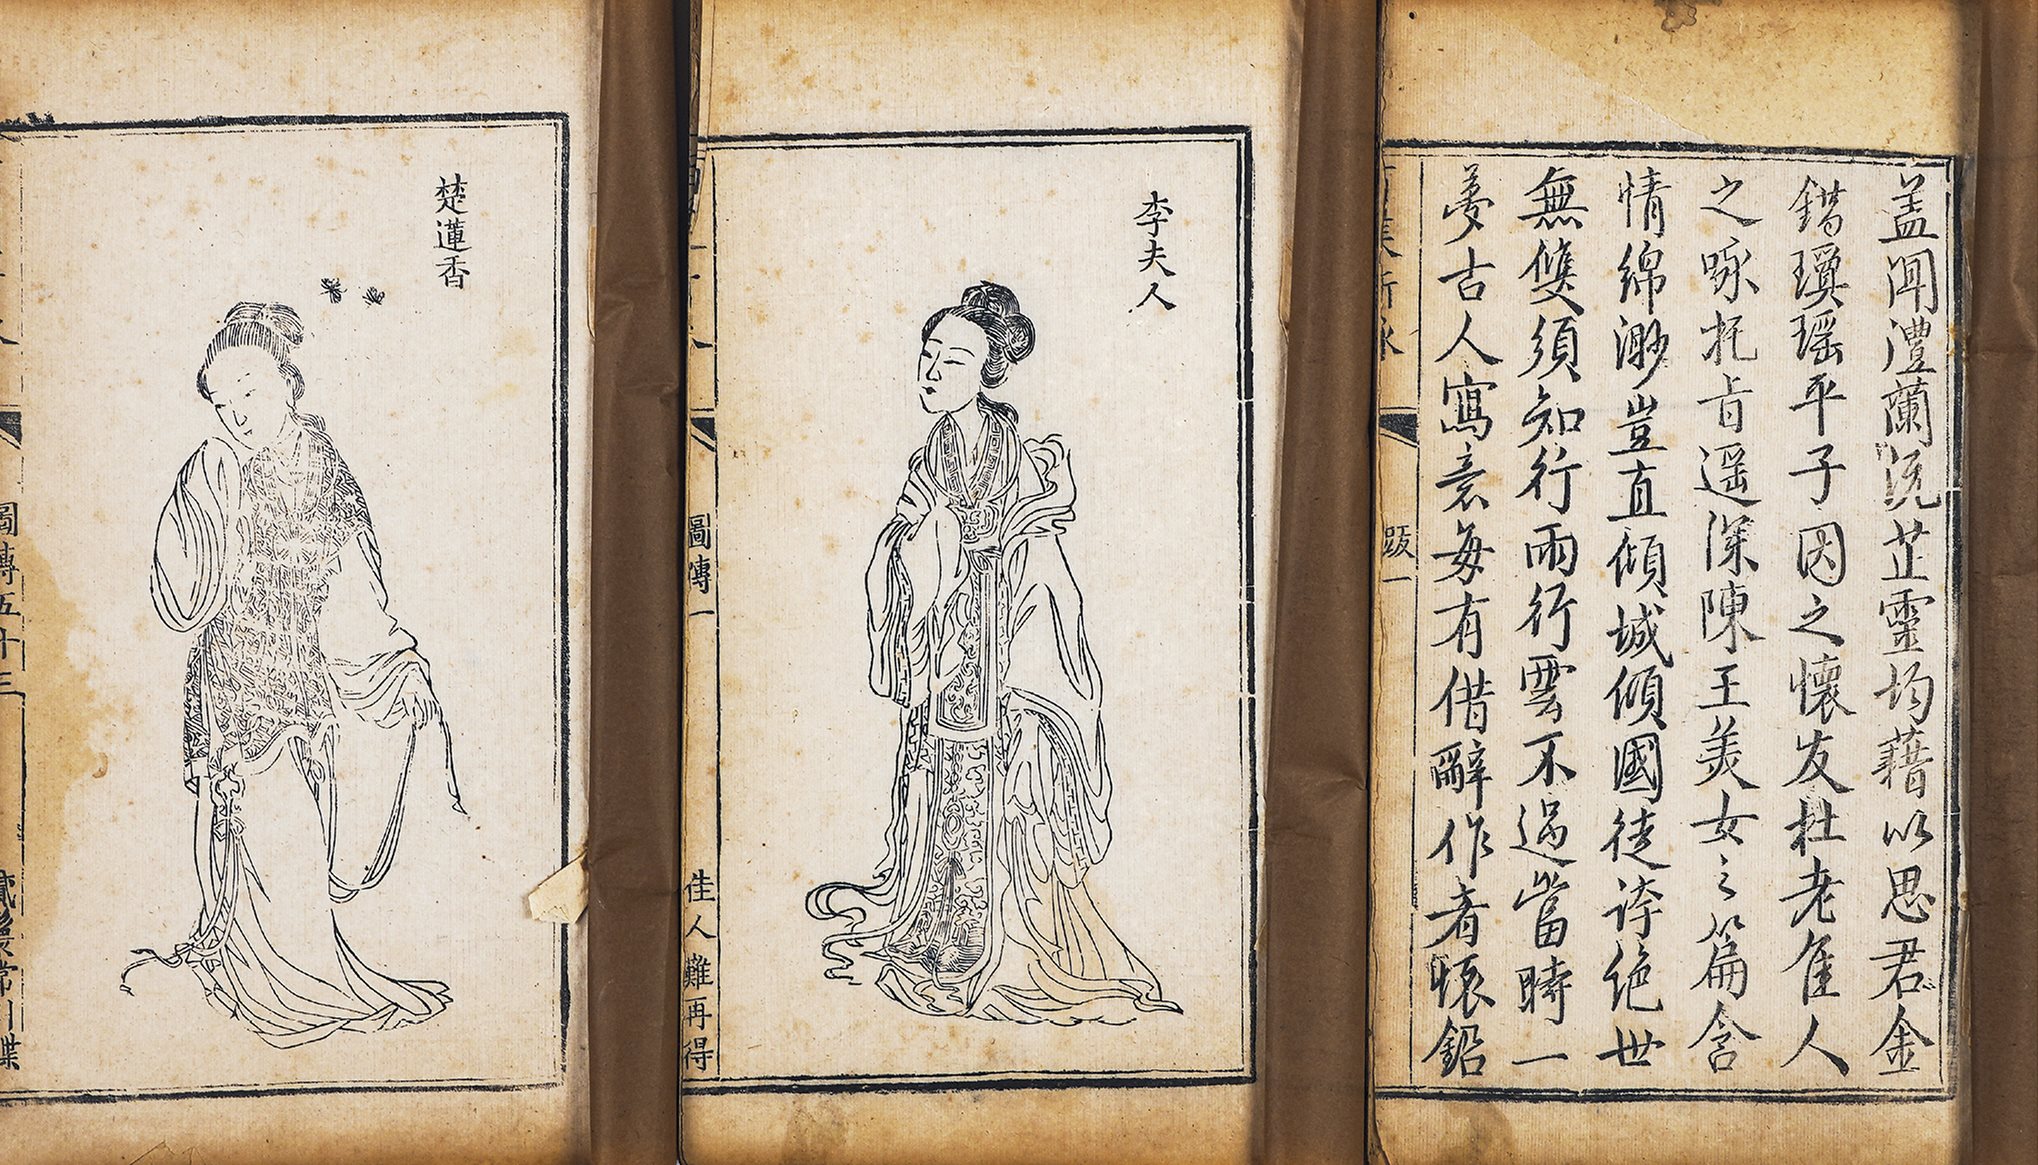 盖聞澧蘭沅芷靈均藉以思君金
錯瓊瑤平子因之懷友杜老佳人
之咏托旨遥深陳王美女之篇含
情綿渺豈直傾城傾國徒誇絶世
無雙須知行雨行雲不過當時一
夢古人寓意每有借辭作者懷鉛
跋一
李夫人
圖傳一
佳人難再得
楚蓮香
圖傳五十三